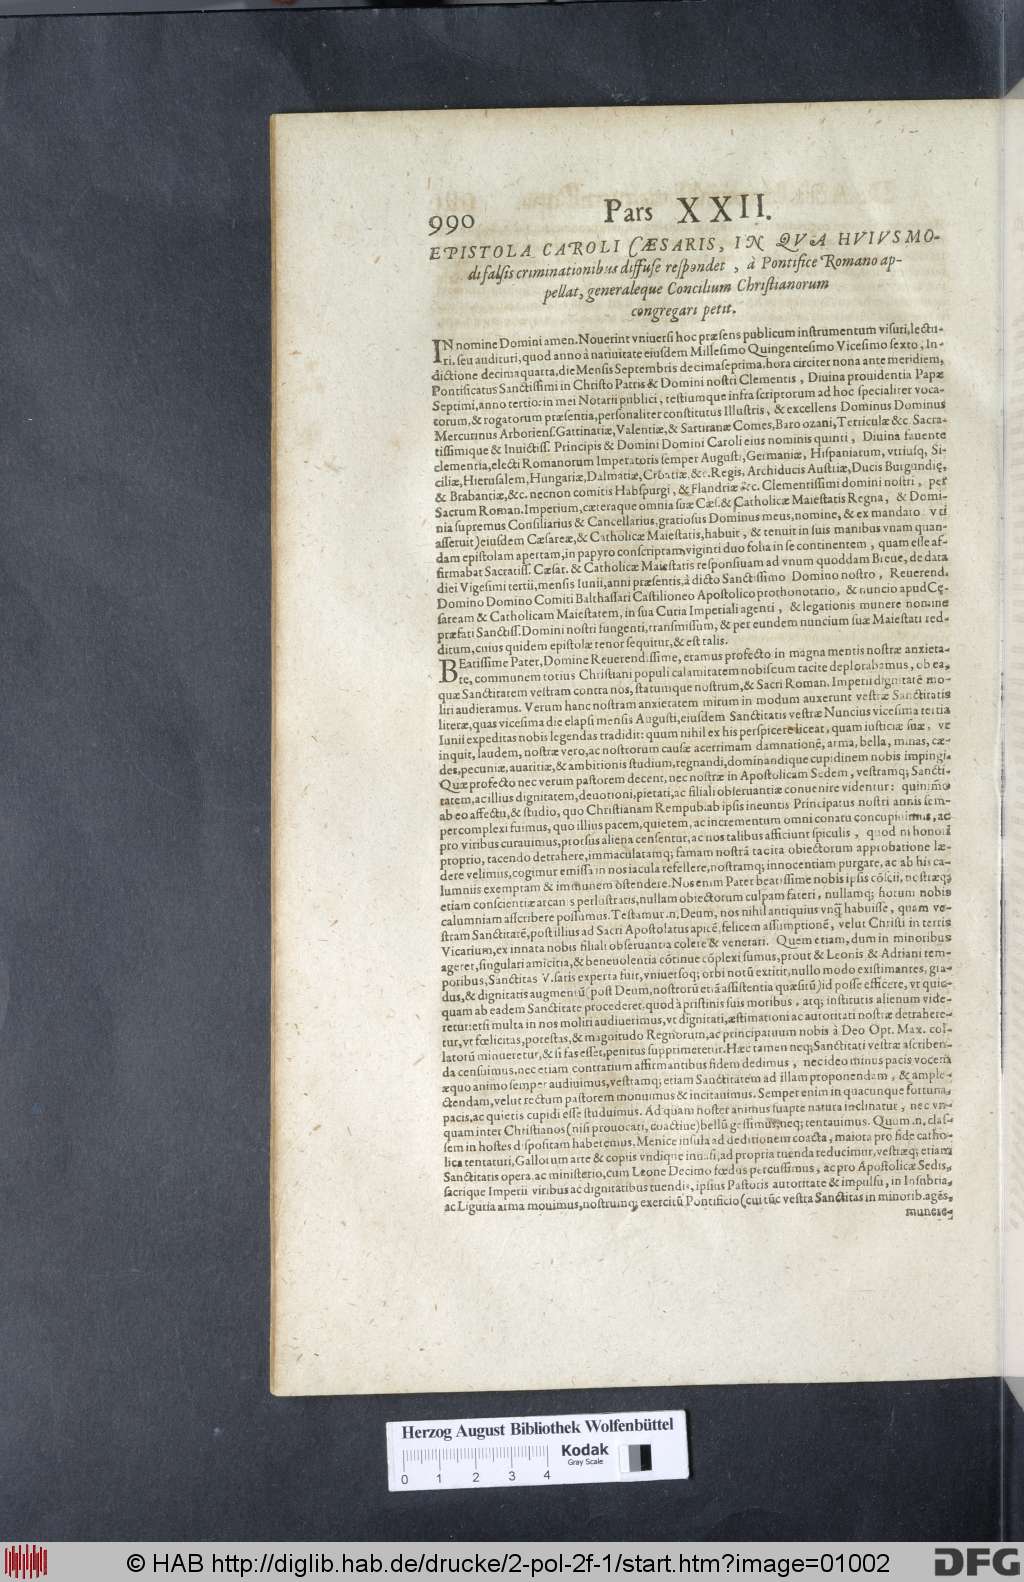 990 Pars XXII.
EPISTOLA CAROLI CÆSARIS, IN QVA HVIVSMO-
di falsis criminationibus diffuse respondet, à Pontifice Romano ap-
pellat, generaleque Concilium Christianorum
congregari petit.
IN nomine Domini amen. Nouerint vniuersi hoc præsens publicum instrumentum visuri, lectu-
ri, seu audituri, quod anno à natiuitate eiusdem Millesimo Quingentesimo Vicesimo sexto, In-
dictione decimaquarta, die Mensis Septembris decimaseptima, hora circiter nona ante meridiem,
Pontificatus Sanctissimi in Christo Patris & Domini nostri Clementis, Diuina prouidentia Papæ
Septimi, anno tertio: in mei Notarii publici, testiumque infra scriptorum ad hoc specialiter voca-
torum, & rogatorum præsentia, personaliter constitutus Illustris, & excellens Dominus Dominus
Mercurinus Arboriens. Gattinariæ, Valentiæ, & Sartiranæ Comes, Baro ozani, Terriculæ &c. Sacra-
tissimique & Inuictiss. Principis & Domini Domini Caroli eius nominis quinti, Diuina fauente
clementia, electi Romanorum Imperatoris semper Augusti, Germaniæ, Hispaniarum, vtriusq; Si-
ciliæ, Hierusalem, Hungariæ, Dalmatiæ, Croatiæ, &c. Regis, Archiducis Austriæ, Ducis Burgundię,
& Brabantiæ, &c. necnon comitis Habspurgi, & Flandriæ &c. Clementissimi domini nostri, per
Sacrum Roman. Imperium, cæteraque omnia suæ Cæs. & Catholicæ Maiestatis Regna, & Domi-
nia supremus Consiliarius & Cancellarius, gratiosus Dominus meus, nomine, & ex mandato vti
asseruit) eiusdem Cæsareæ, & Catholicæ Maiestatis, habuit, & tenuit in suis manibus vnam quan-
dam epistolam apertam, in papyro conscriptam, viginti duo folia in se continentem, quam esse af-
firmabat Sacratiss. Cæsar. & Catholicæ Maiestatis responsiuam ad vnum quoddam Breue, de data
diei Vigesimi tertii, mensis Iunii, anni præsentis, à dicto Sanctissimo Domino nostro, Reuerend.
Domino Domino Comiti Balthassari Castilioneo Apostolico prothonotario, & nuncio apud Cę-
saream & Catholicam Maiestatem, in sua Curia Imperiali agenti, & legationis munere nomine
præfati Sanctiss. Domini nostri fungenti, transmissum, & per eundem nuncium suæ Maiestati red-
ditum, cuius quidem epistolæ tenor sequitur, & est talis.
BEatissime Pater, Domine Reuerendissime, eramus profecto in magna mentis nostræ anxieta-
te, communem totius Christiani populi calamitatem nobiscum tacite deplorabamus, ob ea,
quæ Sanctitatem vestram contra nos, statumque nostrum, & Sacri Roman. Imperii dignitatē mo-
liri audieramus. Verum hanc nostram anxietatem mirum in modum auxerunt vestræ Sanctitatis
literæ, quas vicesima die elapsi mensis Augusti, eiusdem Sanctitatis vestræ Nuncius vicesima tertia
Iunii expeditas nobis legendas tradidit: quum nihil ex his perspicere liceat, quam iusticiæ suæ, vt
inquit, laudem, nostræ vero, ac nostrorum causæ acerrimam damnationē, arma, bella, minas, cæ-
des, pecuniæ, auaritiæ, & ambitionis studium, regnandi, dominandique cupidinem nobis impingi.
Quæ profecto nec verum pastorem decent, nec nostræ in Apostolicam Sedem, vestramq; Sancti-
tatem, ac illius dignitatem, deuotioni, pietati, ac filiali obseruantiæ conuenire videntur: quinimo
ab eo affectu, & studio, quo Christianam Rempub. ab ipsis ineuntis Principatus nostri annis sem-
per complexi fuimus, quo illius pacem, quietem, ac incrementum omni conatu concupiuimus, ac
pro viribus curauimus, prorsus aliena censentur, ac nos talibus afficiunt spiculis, quod ni honori
proprio, tacendo detrahere, immaculatamq; famam nostrā tacita obiectorum approbatione læ-
dere velimus, cogimur emissa in nos iacula refellere, nostramq; innocentiam purgare, ac ab his ca-
lumniis exemptam & immunem ostendere. Nos enim Pater beatissime nobis ipsis cōscii, nostræq;
etiam conscientiæ arcanis perlustratis, nullam obiectorum culpam fateri, nullamq; horum nobis
calumniam asscribere possumus. Testamur .n. Deum, nos nihil antiquius vnq̃ habuisse, quam ve-
stram Sanctitatē, post illius ad Sacri Apostolatus apicē, felicem assumptionē, velut Christi in terris
Vicarium, ex innata nobis filiali obseruantia colere & venerari. Quem etiam, dum in minoribus
ageret, singulari amicitia, & beneuolentia cōtinue cōplexi sumus, prout & Leonis & Adriani tem-
poribus, Sanctitas V. satis experta fuit, vniuersoq; orbi notū extitit, nullo modo existimantes, gra-
dus, & dignitatis augmentū (post Deum, nostrorū etiā assistentia quæsitū) id posse efficere, vt quic-
quam ab eadem Sanctitate procederet, quod à pristinis suis moribus, atq; institutis alienum vide-
retur: etsi multa in nos moliri audiuerimus, vt dignitati, æstimationi ac autoritati nostræ detrahere-
tur, vt fœlicitas, potestas, & magnitudo Regnorum, ac principatuum nobis à Deo Opt. Max. col-
latorū minueretur, & si fas esset, penitus supprimeretur. Hæc tamen neq; Sanctitati vestræ ascriben-
da censuimus, nec etiam contrarium affirmantibus fidem dedimus, nec ideo minus pacis vocem
æquo animo semper audiuimus, vestramq; etiam Sanctitatem ad illam proponendam, & ample-
ctendam, velut rectum pastorem monuimus & incitauimus. Semper enim in quacunque fortuna,
pacis, ac quietis cupidi esse studuimus. Ad quam noster animus suapte natura inclinatur, nec vn-
quam inter Christianos (nisi prouocati, coactiue) bellū gessimus, neq; tentauimus. Quum .n. clas-
sem in hostes dispositam haberemus, Menice insula ad deditionem coacta, maiora pro fide catho-
lica tentaturi, Gallorum arte & copiis vndique inuasi, ad propria tuenda reducimur, vestræq; etiam
Sanctitatis opera, ac ministerio, cum Leone Decimo fœdus percussimus, ac pro Apostolicæ Sedis,
sacrique Imperii viribus ac dignitatibus tuendis, ipsius Pastoris autoritate & impulsu, in Insubria,
ac Liguria arma mouimus, nostrumq; exercitū Pontificio (cui tūc vestra Sanctitas in minorib. agēs,
munere
Herzog August Bibliothek Wolfenbüttel
0 1 2 3 4
Kodak
Gray Scale
© HAB http://diglib.hab.de/drucke/2-pol-2f-1/start.htm?image=01002
DFG